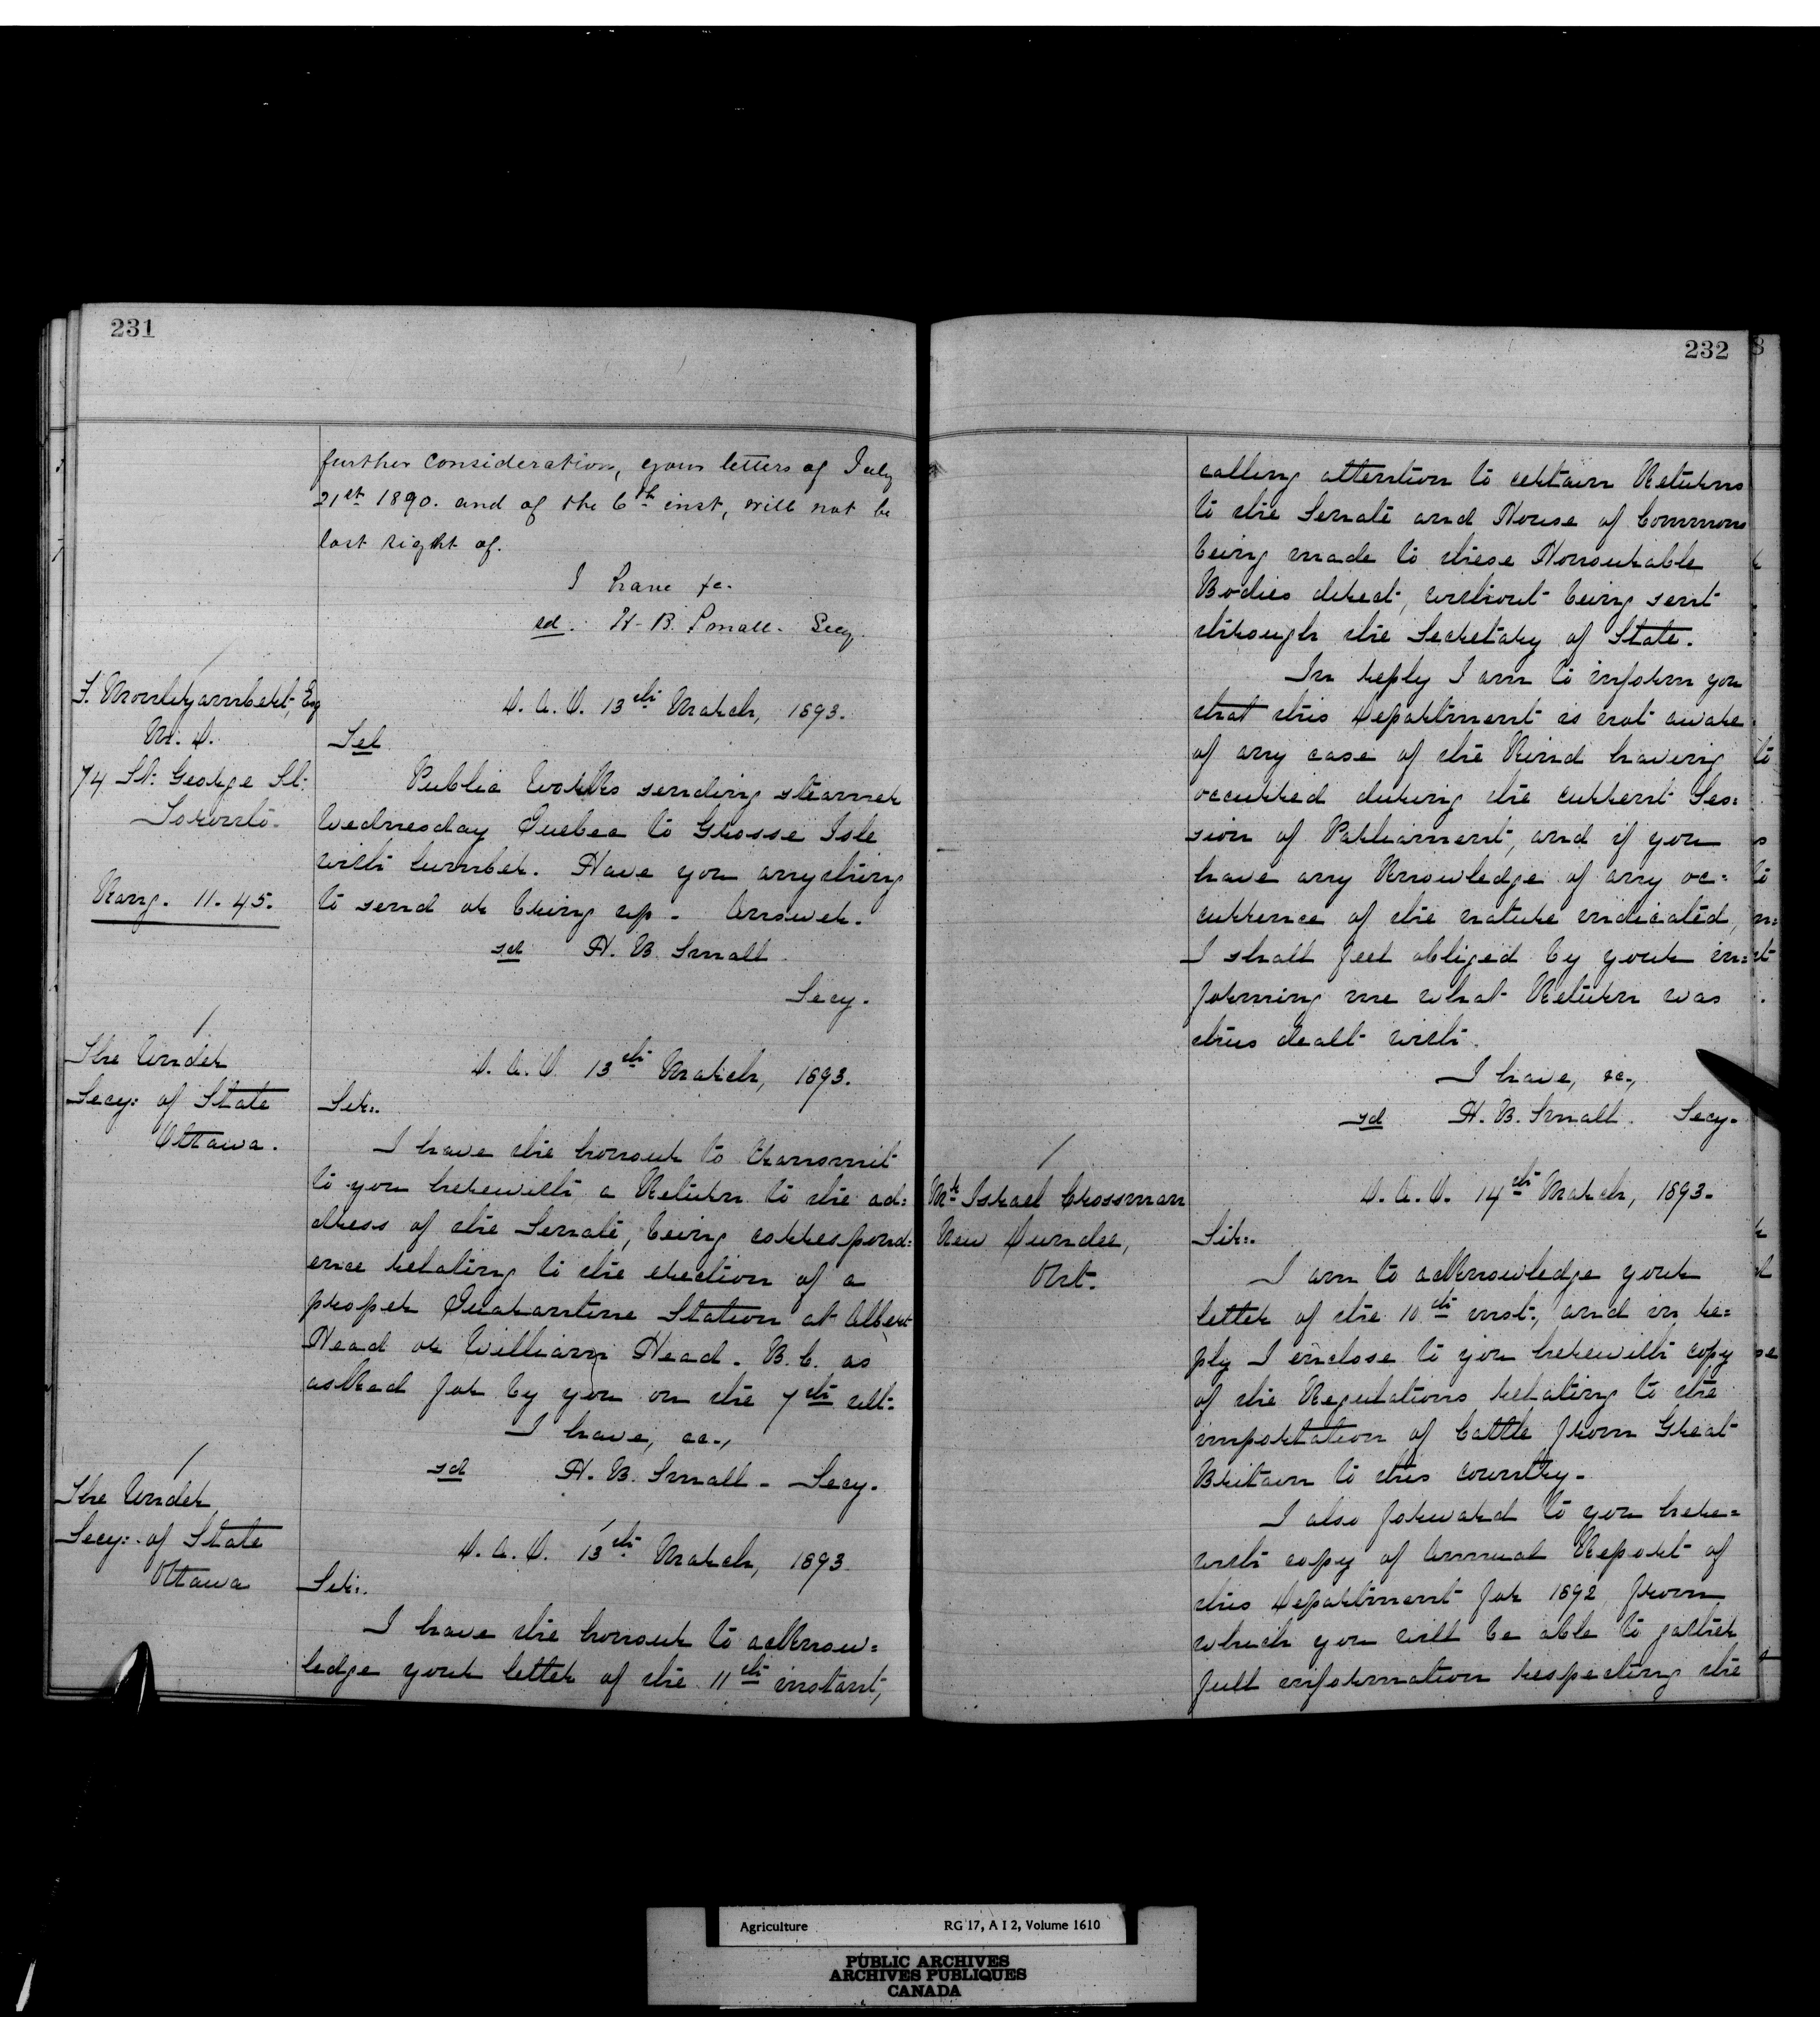 231
further consideration, your letters of July
21st 1890. and of the 6th inst, will not be
lost sight of.
I have &c.
sd. H. B. Small. Secy.
F. Montizambert, Esq
M. D.
74 St. George St.
Toronto.
Rang. 11.45.
D. A. O. 13th March, 1893.
Tel
Public Works sending steamer
Wednesday Quebec to Grosse Isle
with lumber. Have you anything
to send or bring up - Answer.
sd H. B. Small
Secy.
The Under
Secy: of State
Ottawa.
D. A. O. 13th March, 1893.
Sir:.
I have the honour to transmit
to you herewith a Return to the ad=
dress of the Senate, being correspond=
ence relating to the erection of a
proper Quarantine Station at Albert
Head or William Head. B.C. as
asked for by you on the 7th ult.
I have, &c.,
sd H. B. Small - Secy.
The Under
Secy: of State
Ottawa
D. A. O. 13th March, 1893
Sir:.
I have the honour to acknow=
ledge your letter of the 11th instant,
232
calling attention to certain Returns
to the Senate and House of Commons
being made to these Honourable
Bodies direct, without being sent
through the Secretary of State.
In reply I am to inform you
that this Department is not aware
of any case of the kind having
occurred during the current Ses=
sion of Parliament, and if you
have any knowledge of any oc=
currence of the nature indicated,
I shall feel obliged by your in=
forming me what Return was
thus dealt with.
I have, &c.,
sd H. B. Small. Secy.
Mr Israel Crossman
New Dundee,
Ont.
D. A. O. 14th March, 1893.
Sir:.
I am to acknowledge your
letter of the 10th inst., and in re=
ply I enclose to you herewith copy
of the Regulations relating to the
importation of Cattle from Great
Britain to this country.
I also forward to you here=
with copy of Annual Report of
this Department for 1892 from
which you will be able to gather
full information respecting the
Agriculture RG 17, A I 2, Volume 1610
PUBLIC ARCHIVES
ARCHIVES PUBLIQUES
CANADA